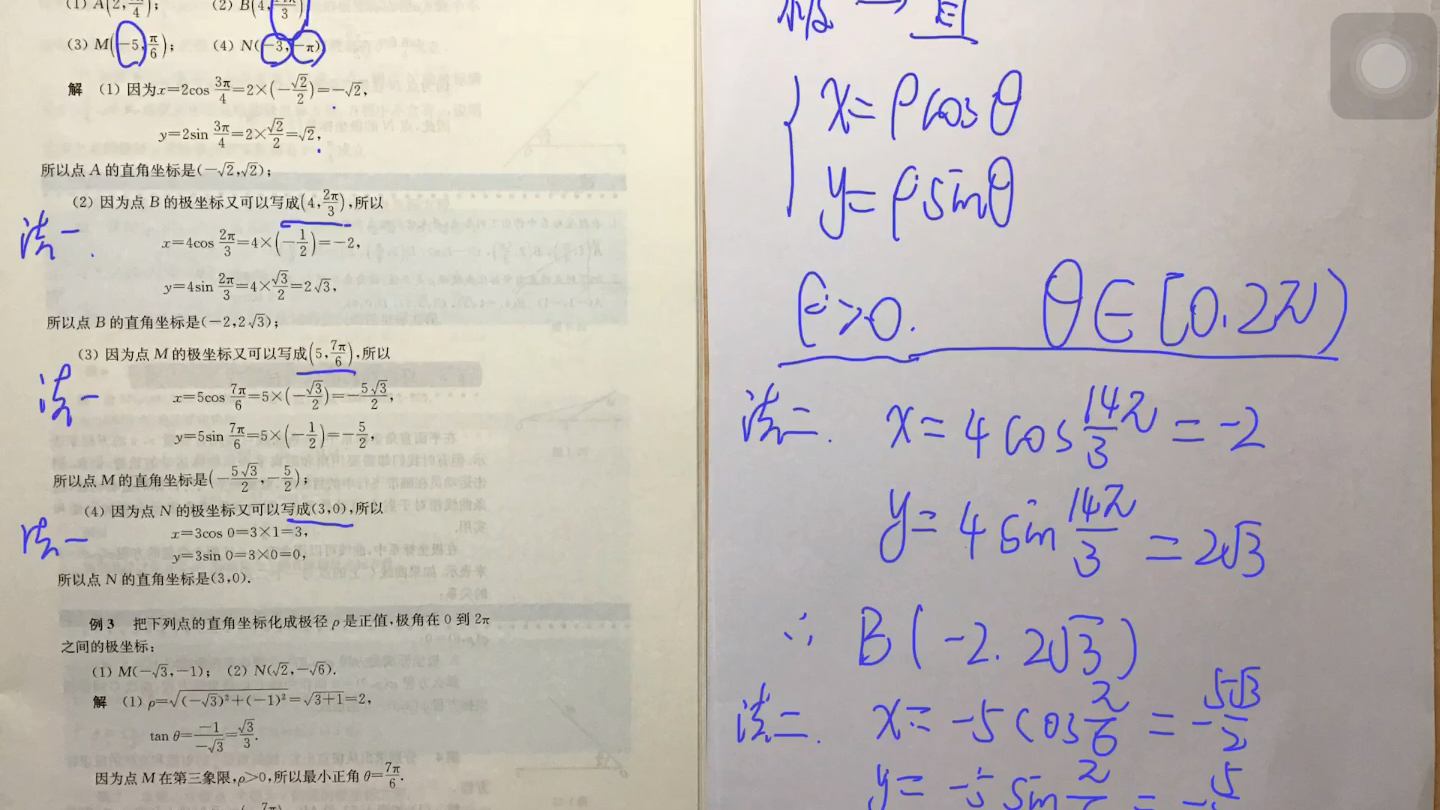 (1) A(2, 3π/4); (2) B(4,
(3) M(-5, π/6); (4) N(-3, -π)
解 (1) 因为x=2cos 3π/4=2×(-√2/2)=-√2,
y=2sin 3π/4=2×√2/2=√2,
所以点 A 的直角坐标是(-√2,√2);
(2) 因为点 B 的极坐标又可以写成(4, 2π/3),所以
法一.
x=4cos 2π/3=4×(-1/2)=-2,
y=4sin 2π/3=4×√3/2=2√3,
所以点 B 的直角坐标是(-2,2√3);
(3) 因为点 M 的极坐标又可以写成(5, 7π/6),所以
法一
x=5cos 7π/6=5×(-√3/2)=-5√3/2,
y=5sin 7π/6=5×(-1/2)=-5/2,
所以点 M 的直角坐标是(-5√3/2,-5/2);
(4) 因为点 N 的极坐标又可以写成(3,0),所以
法一
x=3cos 0=3×1=3,
y=3sin 0=3×0=0,
所以点 N 的直角坐标是(3,0).
例 3 把下列点的直角坐标化成极径 ρ 是正值,极角在 0 到 2π
之间的极坐标:
(1) M(-√3,-1); (2) N(√2,-√6).
解 (1) ρ=√((-√3)²+(-1)²)=√(3+1)=2,
tan θ=-1/-√3=√3/3.
因为点 M 在第三象限,ρ>0,所以最小正角θ=7π/6.
极 → 直
x=ρcosθ
y=ρsinθ
ρ>0. θ∈[0.2π)
法二. x=4cos 14π/3=-2
y=4sin 14π/3=2√3
∴ B(-2.2√3)
法二. x=-5cos π/6=-5√3/2